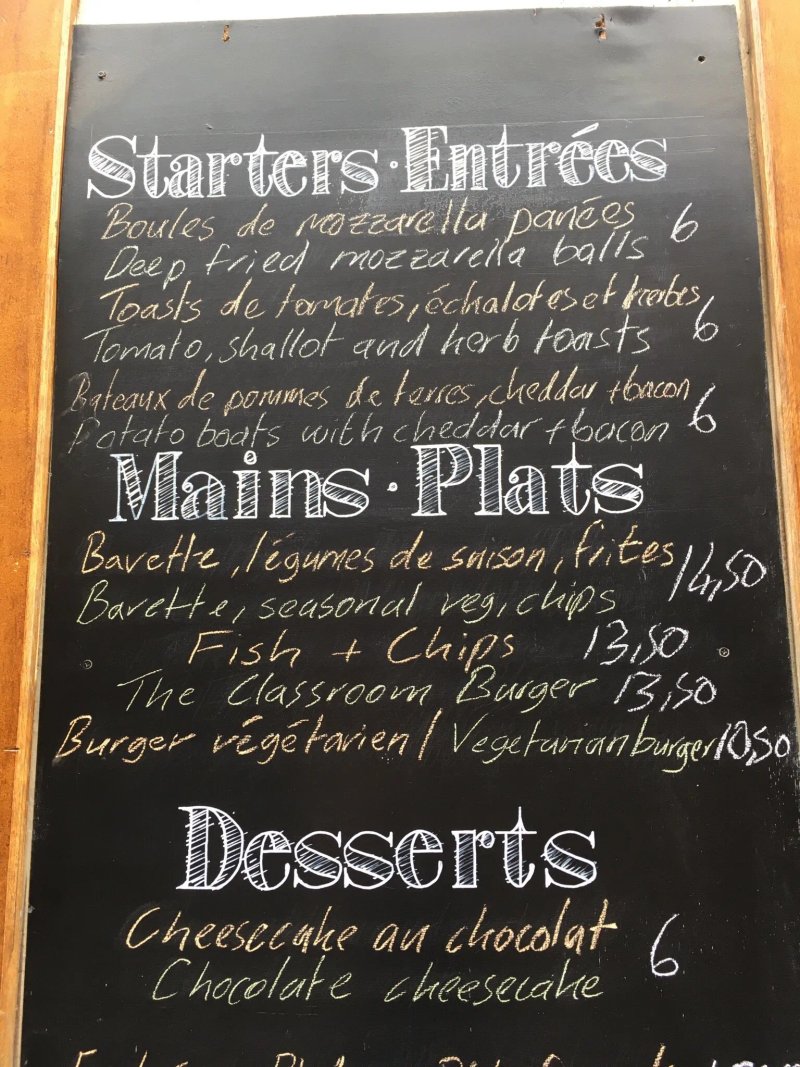 Starters · Entrées
Boules de mozzarella panées 6
Deep fried mozzarella balls
Toasts de tomates, échalotes et herbes
Tomato, shallot and herb toasts 6
Bateaux de pommes de terres, cheddar + bacon
Potato boats with cheddar + bacon 6
Mains · Plats
Bavette, légumes de saison, frites 14,50
Bavette, seasonal veg, chips
Fish + Chips 13,50
The Classroom Burger 13,50
Burger végétarien / Vegetarian burger 10,50
Desserts
Cheesecake au chocolat 6
Chocolate cheesecake